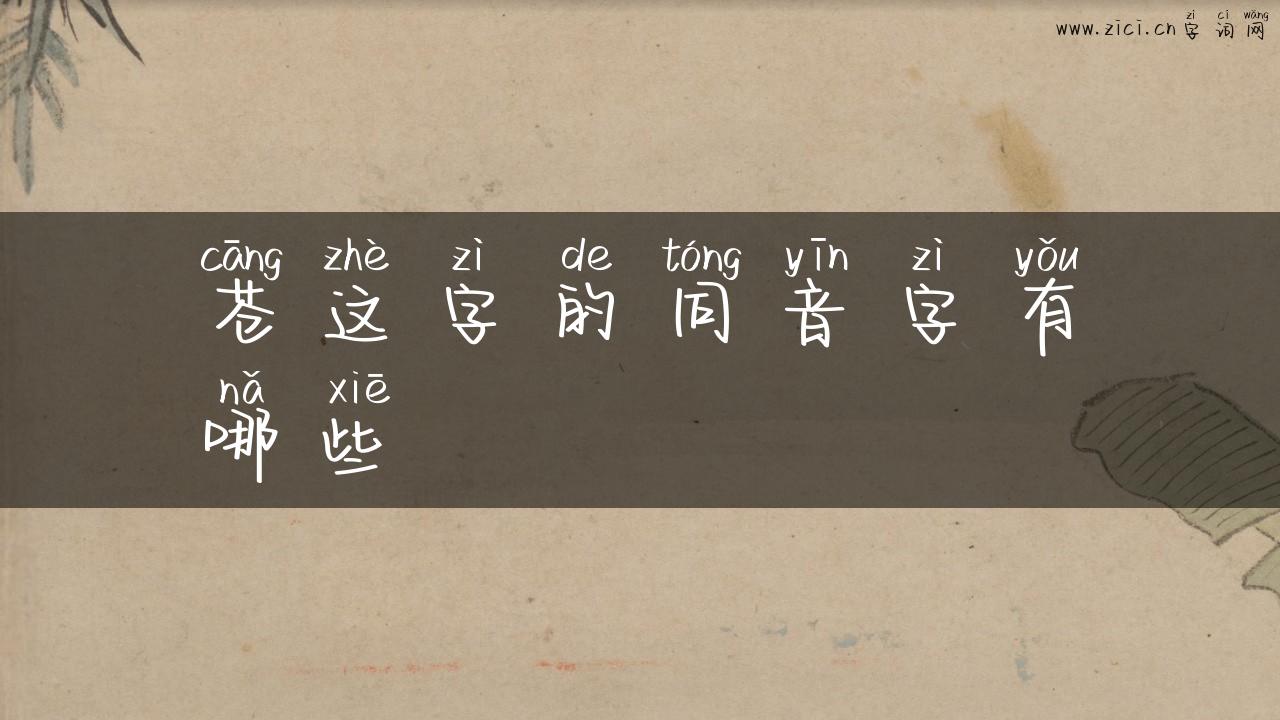 zì cí wǎng
www.zici.cn 字词网
cāng zhè zì de tóng yīn zì yǒu
苍这字的同音字有
nǎ xiē
哪些